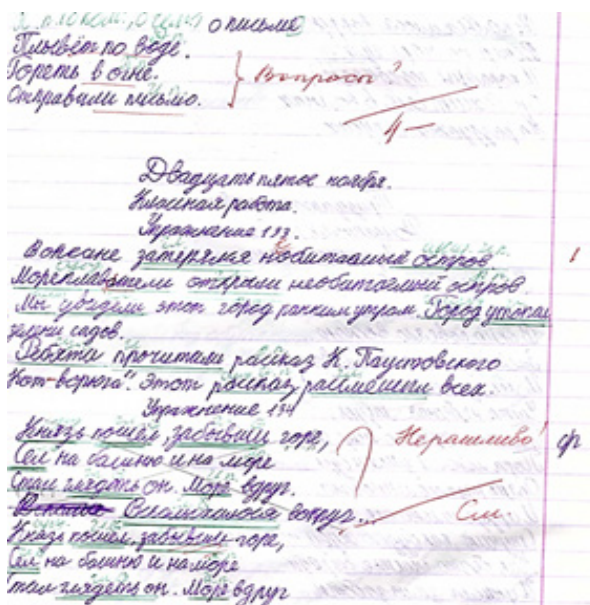 о письме
Плывёт по воде.
Гореть в огне.
Отправили письмо.
Вопросы?
4-
Двадцать пятое ноября.
Классная работа.
Упражнение 193.
В океане затерялся необитаемый остров
1
Мореплаватели открыли необитаемый остров
Мы увидели этот город ранним утром. Город утопал
зелени садов.
Ребята прочитали рассказ К. Паустовского
Кот-ворюга". Этот рассказ рассмешил всех.
Упражнение 194
Князь пошёл, забывши горе,
Нерашливо!
ф
Сел на башню и на море
Стал глядеть он. Море вдруг
Всколыхалося вокруг...
См.
Князь пошел, забывши горе,
Сел на башню и на море
Стал глядеть он. Море вдруг